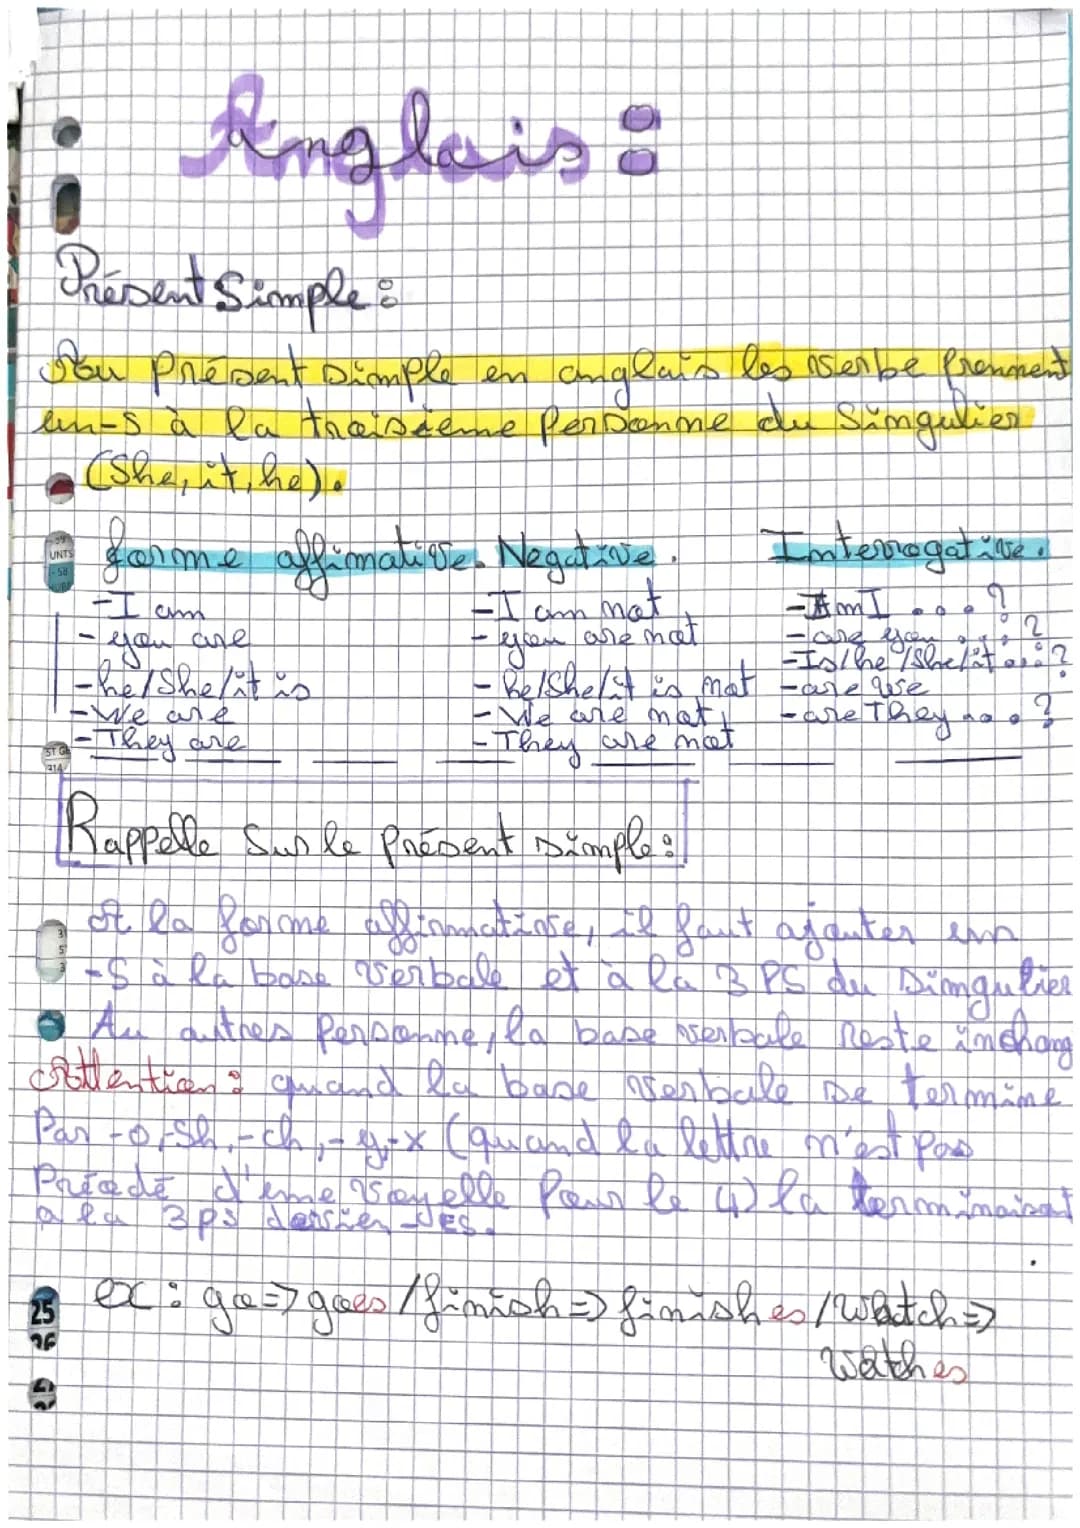 Anglais :
Présent Simple :
Au Présent simple en anglais les verbe prennent
un -s à la troisième Personne du Singulier
(She, it, he).
forme affimative. Negative. Interrogative.
- I am - I am not - Am I ... ?
- you are - you are not - are you ... ?
- he/She/it is - he/She/it is not - Is/he/She/it ... ?
- We are - We are not - are we
- They are - They are not - are They ... ?
Rappelle Sur le Présent simple :
A la forme affirmative, il faut ajouter un
-S à la base verbale et à la 3 PS du Singulier
Au autres Personne, la base verbale Reste inchang
Attention : quand la base verbale se termine
Par -o, -sh, -ch, -y, -x (quand la lettre n'est pas
Précédé d'une voyelle pour le y) la terminaison
a la 3PS -ES.
ex : go => goes / finish => finishes / Watch =>
Watches
25
UNTS